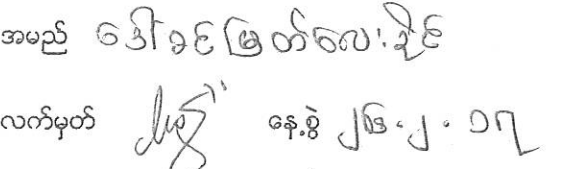 အမည် ဒေါ်ခင်မြတ်လေးခိုင်
လက်မှတ် နေ့စွဲ ၂၆.၂.၁၇